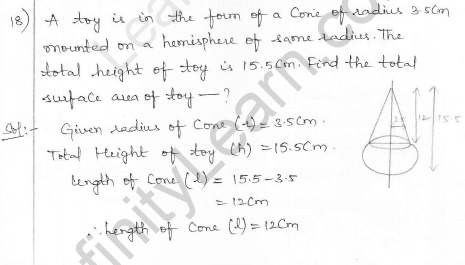 18) A toy is in the form of a Cone of radius 3.5Cm
mounted on a hemisphere of same radius. The
total height of toy is 15.5Cm. Find the total
surface area of toy —?
Sol:- Given radius of Cone (r) = 3.5Cm.
Total Height of toy (h) = 15.5Cm.
Length of Cone (l) = 15.5 - 3.5
= 12Cm
∴ Length of Cone (l) = 12Cm
12
15.5